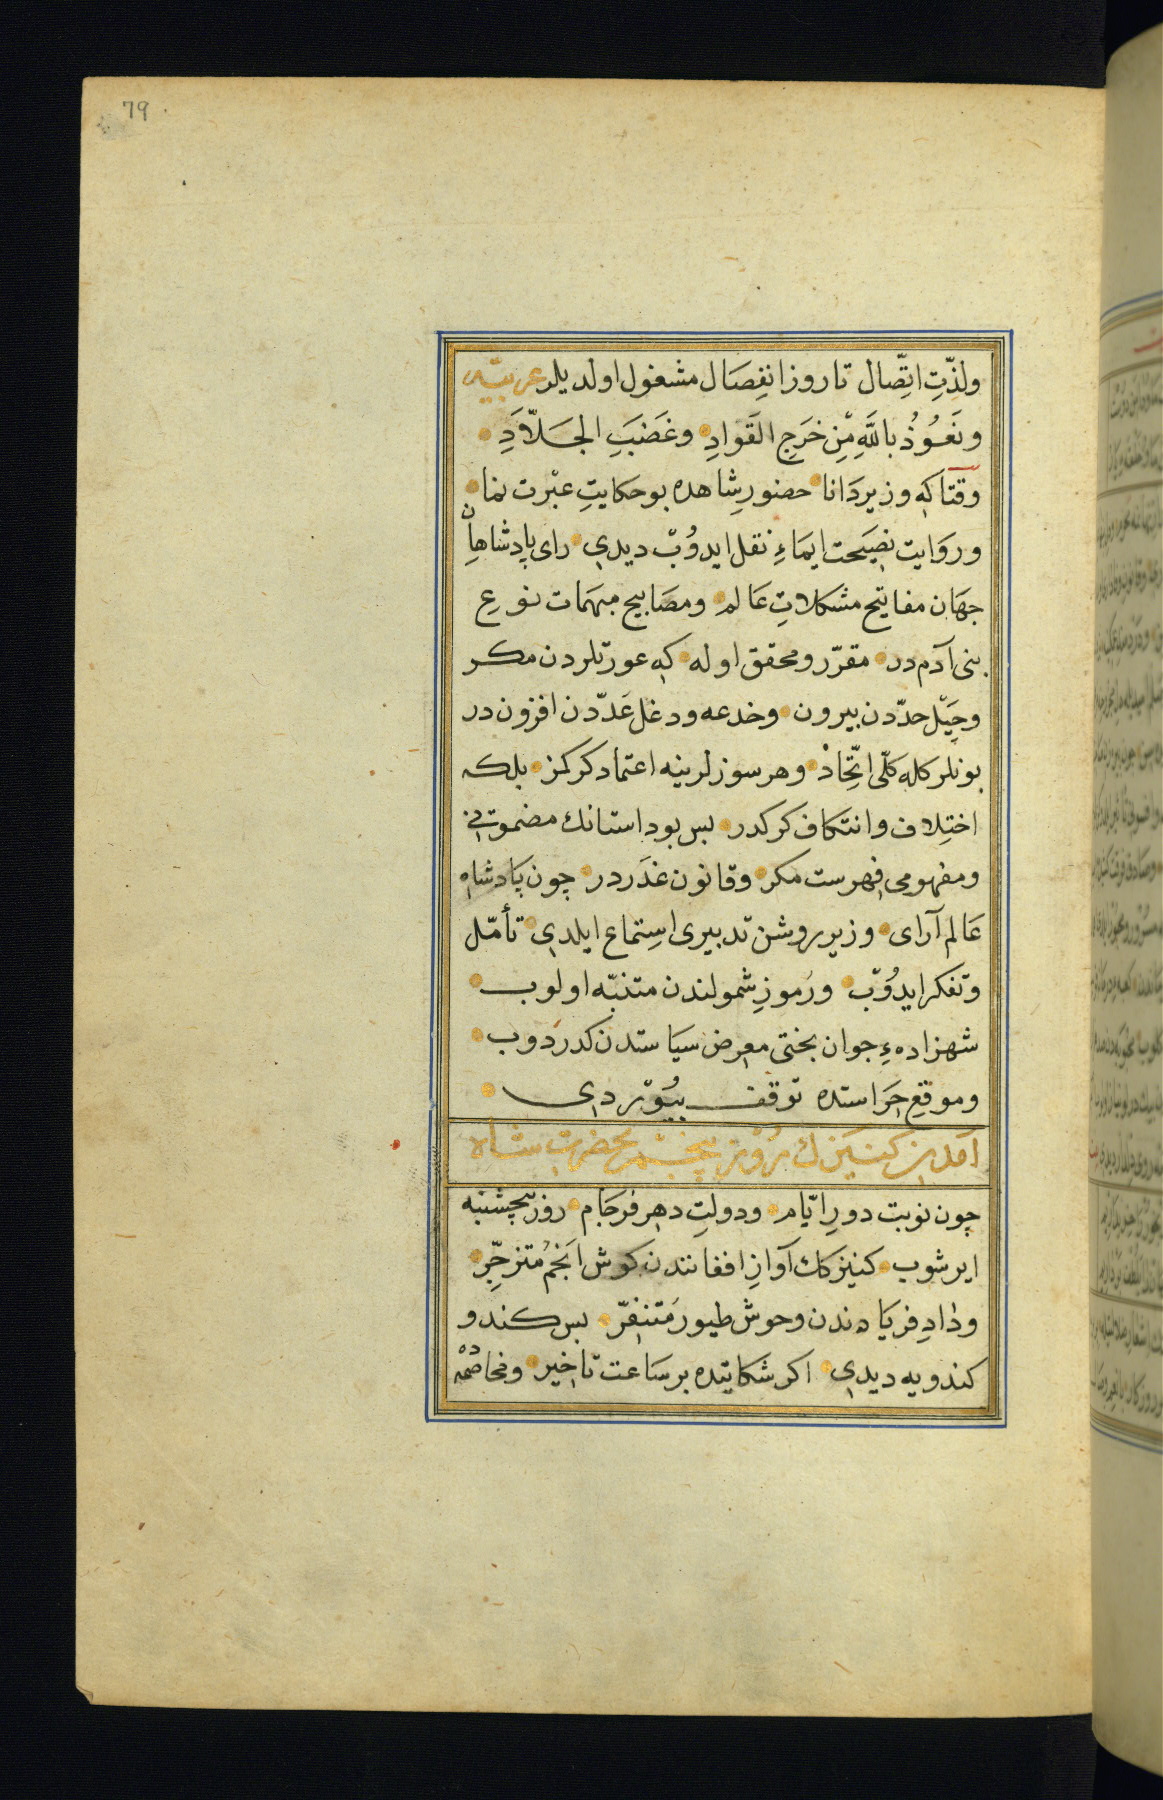 79
ولذّتِ اتِّصال تا روز انفِصَال مشغول اولدیلر عربیّه
ونَعُوُذُ بِاللَّهِ مِنْ خَرَجِ القَوادِ وغَضَبَِ الجَلاّدِ
وقتا که وزیر دَانا حضورِ شاهده بو حکایتِ عبْرت نما
وروَایت نصِیَحت ایمَاءِ نقل ایدوُبْ دیدی رای پادشاهاِن
جهَان مفاتیح مشکلاتِ عَالم ومصَابیح مبهمات نوعِ
بنی آدم در مقرّر و محقق اوله که عورتلردن مکر
وحِیَل حدّدن بیرون وخدعه ودغل عَدّدن افزون در
بونلرکله کلّی اتِّخاذ وهر سوزلرینه اعتماد کرکمز بلکه
اختِلاف وانتکاف کرکدر بس بو داستانك مضمونی
ومفهومی فهرست مکر وقانون غدَردر چون پَادشاه
عَالم آرای وزیر روشن تدبیری استِماع ایلدی تأمّل
وتفکر ایدوُبْ ورمُوزِ شمولندن متنبّه اولوب
شهزادهءِ جوان بختی معرِض سیاستدن کدردوب
وموقع حِرَاستده توقف بیُوْردی
آمدن کنیزك روز پنجم بحضرت شاه
چون نوبت دورِ ایّام ودولتِ دهر فرجَام روز پنجشنبه
ایرشوب کنیزکك آوازِ افغانندن کوش انجُم متزجِّر
ودٰادِ فریَادندن وحوش طیور مُتنفِّر بس کندو
کندویه دیدی اکر شکایتده بر سَاعت تاخیر ومخاصَمْه ده